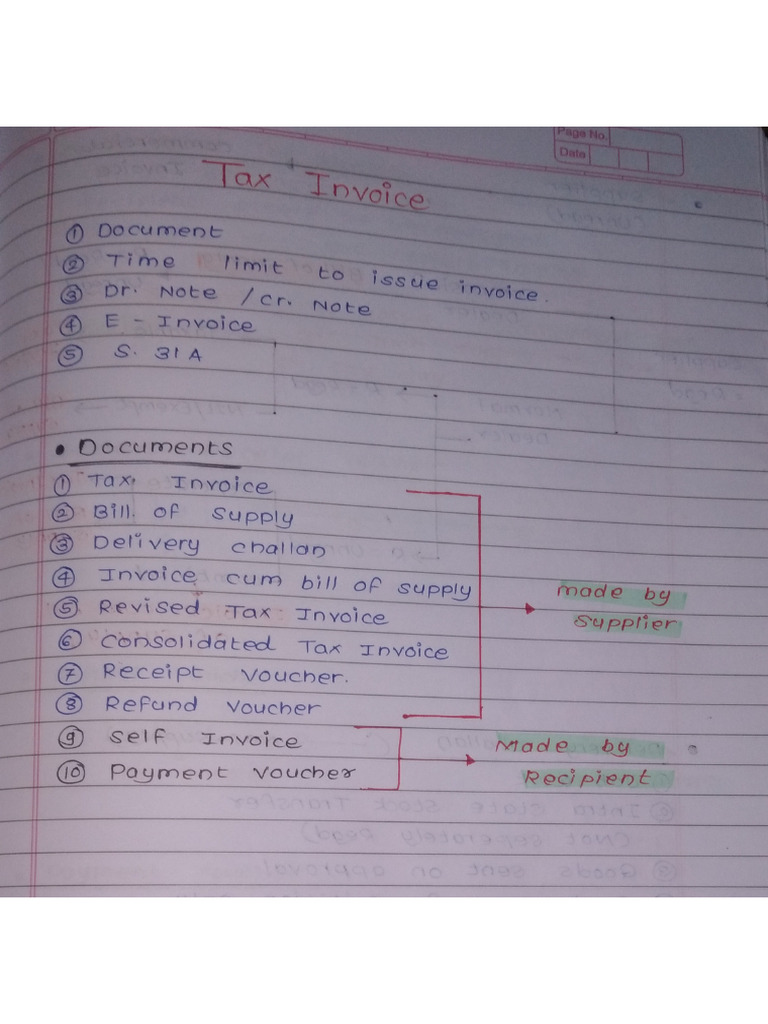 Page No.
Date
Tax Invoice
① Document
② Time limit to issue invoice.
③ Dr. Note / cr. Note
④ E - Invoice
⑤ S. 31A
• Documents
① Tax Invoice
② Bill of supply
③ Delivery challan
④ Invoice cum bill of supply
⑤ Revised Tax Invoice
⑥ Consolidated Tax Invoice
⑦ Receipt voucher.
⑧ Refund voucher
made by
Supplier
⑨ Self Invoice
⑩ Payment voucher
Made by
Recipient